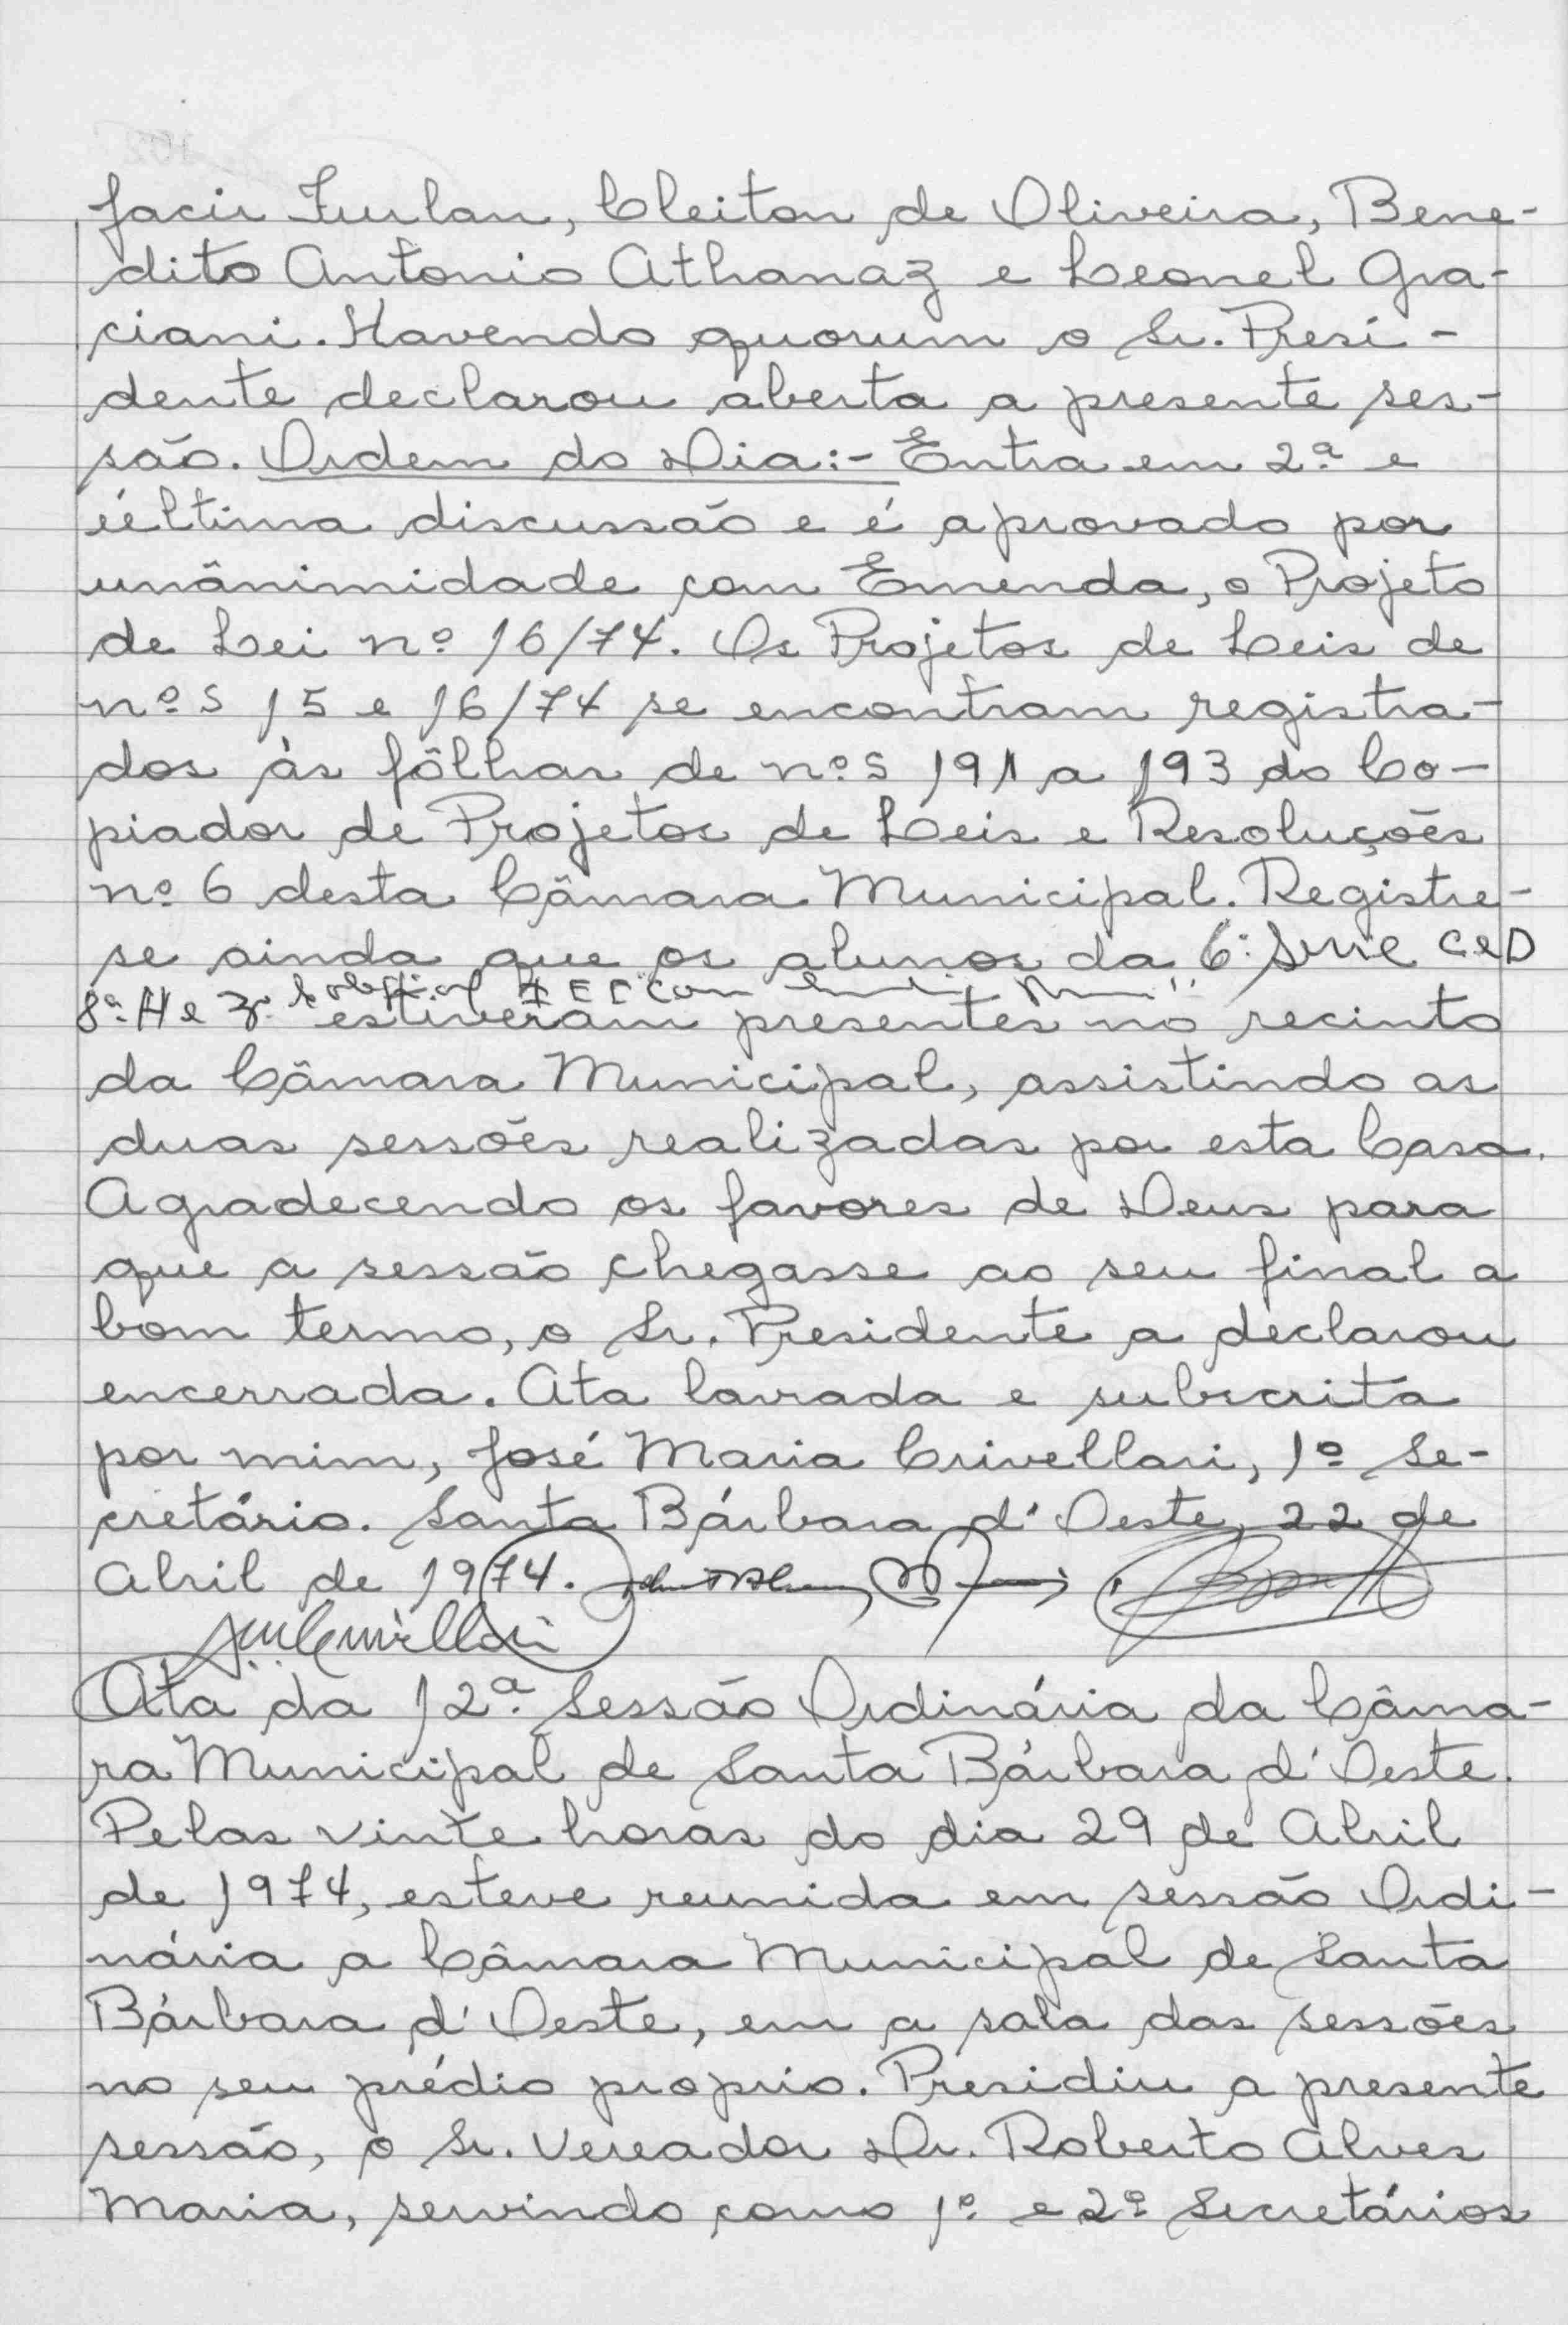 Jacir Furlan, Cleiton de Oliveira, Bene-
dito Antonio Athanaz e Leonel Gra-
ciani. Havendo quorum o Sr. Presi-
dente declarou aberta a presente ses-
são. Ordem do Dia:- Entra em 2ª e
última discussão e é aprovado por
unânimidade com Emenda, o Projeto
de Lei nº 16/74. Os Projetos de Leis de
nºs 15 e 16/74 se encontram registra-
dos às fôlhas de nºs 191 a 193 do Co-
piador de Projetos de Leis e Resoluções
nº 6 desta Câmara Municipal. Registre-
se ainda que os alunos da 6ª Serie C e D
8ª H e 3º
estiveram presentes no recinto
da Câmara Municipal, assistindo as
duas sessões realizadas por esta Casa.
Agradecendo os favores de Deus para
que a sessão chegasse ao seu final a
bom termo, o Sr. Presidente a declarou
encerrada. Ata lavrada e subscrita
por mim, José Maria Crivellari, 1º Se-
cretário. Santa Bárbara d'Oeste, 22 de
Abril de 1974.
Ata da 12ª Sessão Ordinária da Câma-
ra Municipal de Santa Bárbara d'Oeste.
Pelas vinte horas do dia 29 de Abril
de 1974, esteve reunida em sessão Ordi-
nária a Câmara Municipal de Santa
Bárbara d'Oeste, em a sala das sessões
no seu prédio proprio. Presidiu a presente
sessão, o Sr. Vereador Dr. Roberto Alves
Maria, servindo como 1º e 2º Secretários